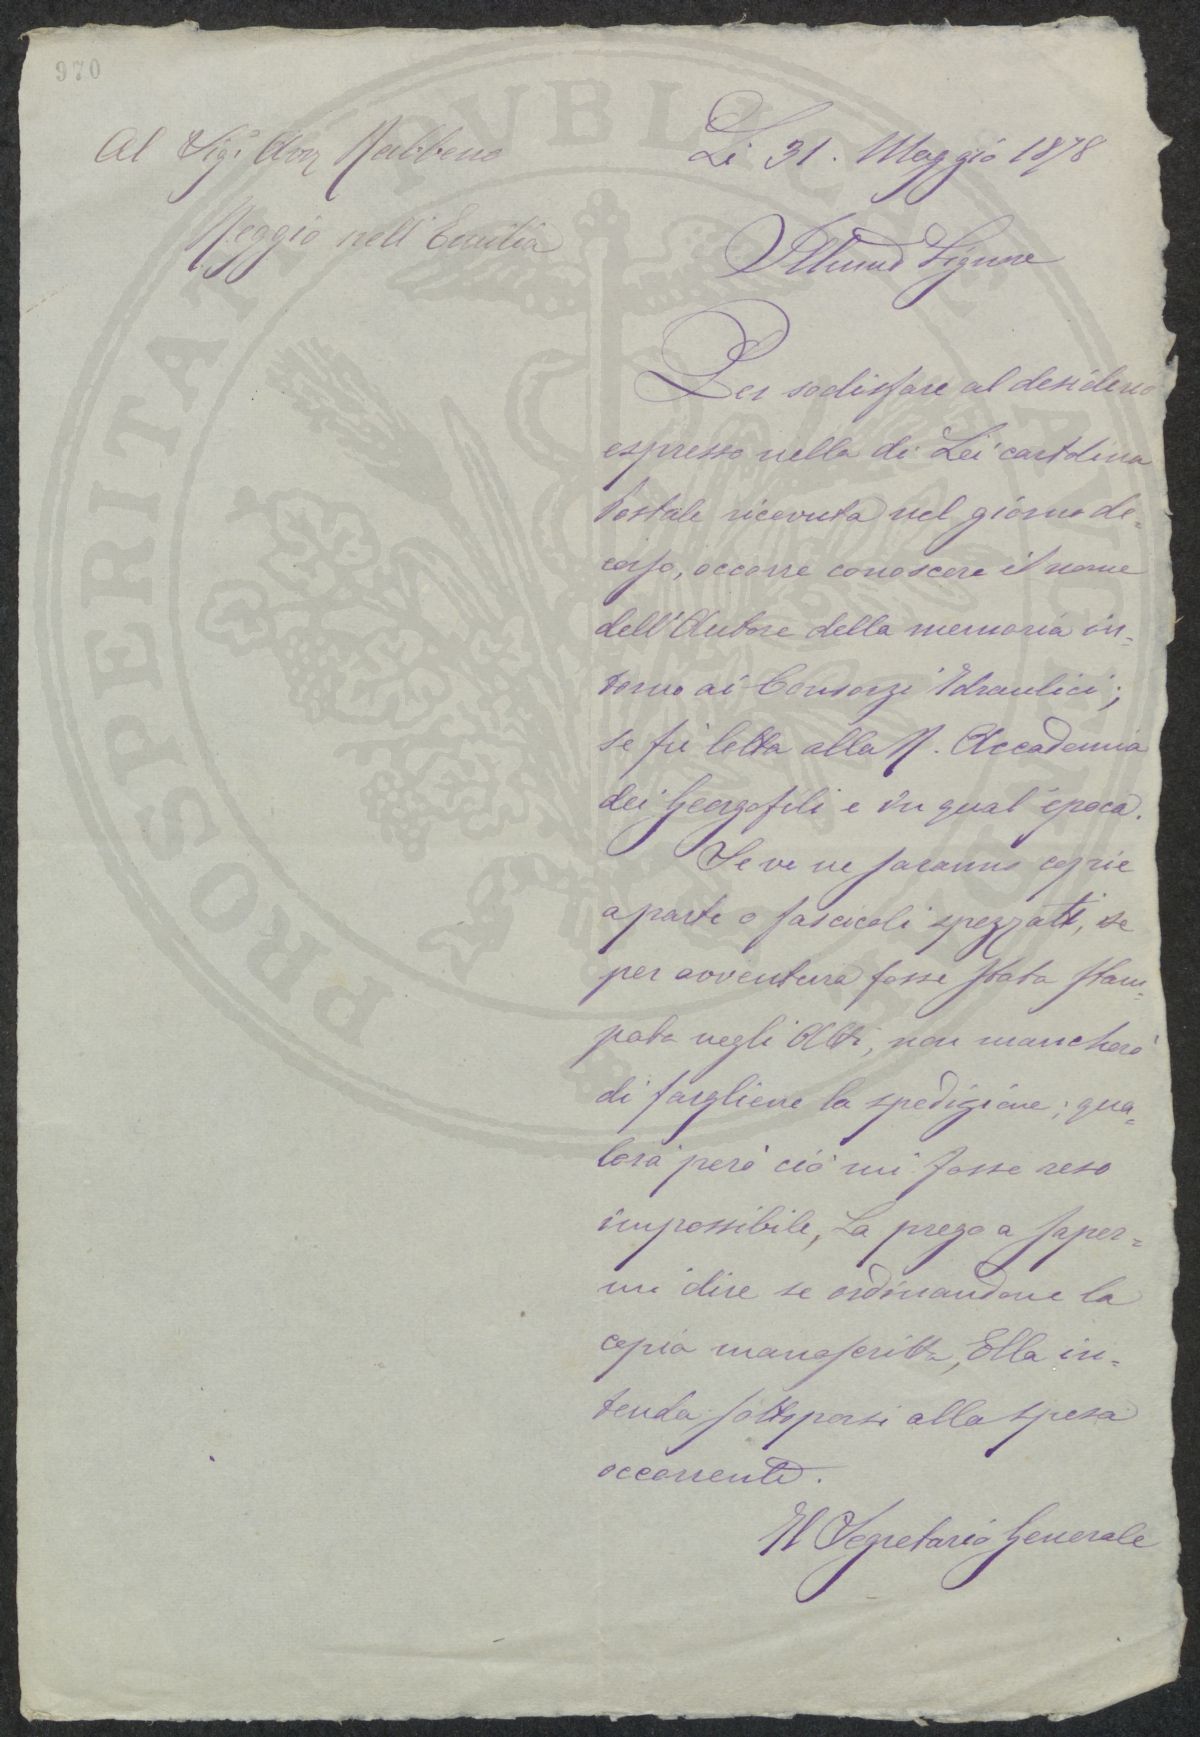 970
Al Sig.r Avv. Rabbeno
Reggio nell'Emilia
Li 31. Maggio 1878
Illumo Signore
Per sodisfare al desiderio
espresso nella di Lei cartolina
postale ricevuta nel giorno de=
corso, occorre conoscere il nome
dell'Autore della memoria in=
torno ai Consorzi Idraulici;
se fu letta alla R. Accademia
dei Georgofili e in qual'epoca.
Se ve ne saranno copie
a parte o fascicoli spezzati, se
per avventura fosse stata stam=
pata negli Atti, non mancherò
di fargliene la spedizione; qua=
lora però ciò mi fosse reso
impossibile, La prego a saper=
mi dire se ordinandone la
copia manoscritta, Ella in=
tenda sottoporsi alla spesa
occorrente.
Il Segretario Generale
PROSPERITATI PVBLICAE